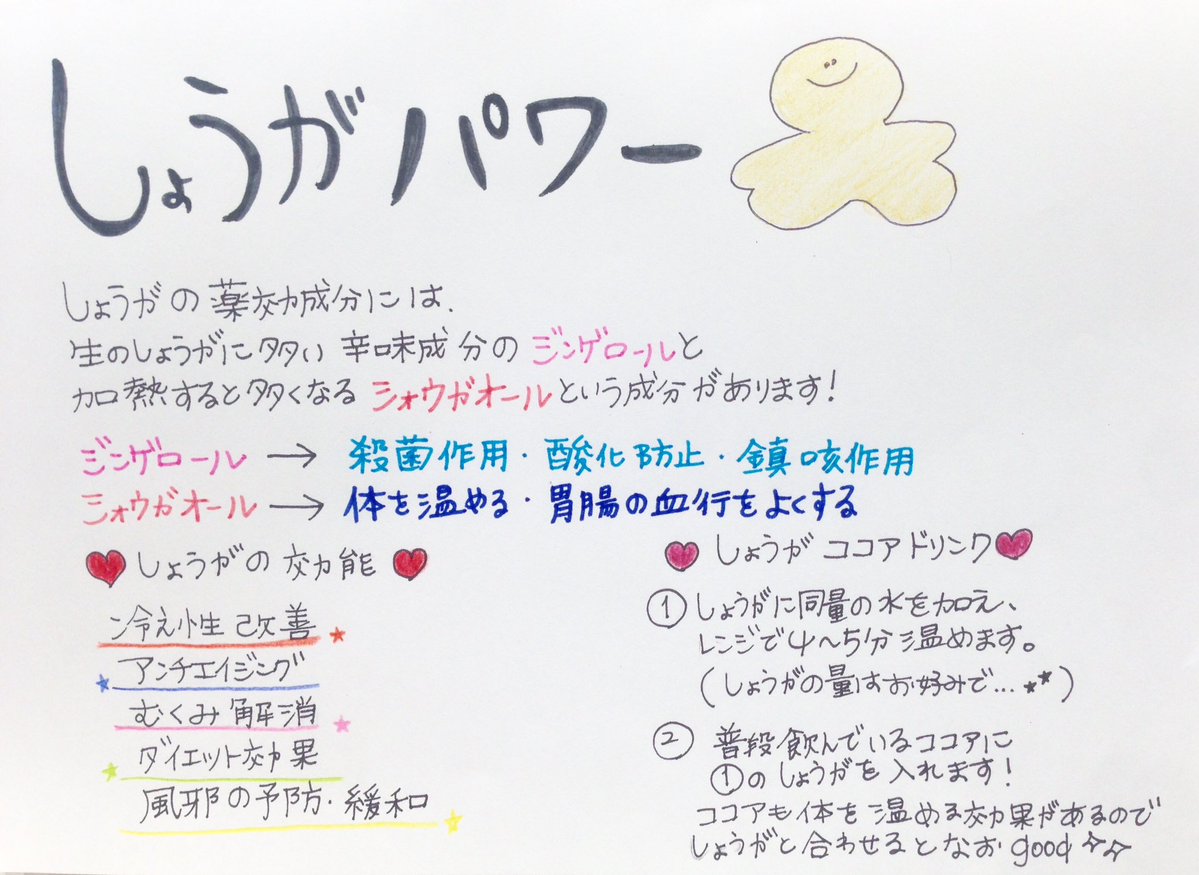 しょうがパワー
しょうがの薬効成分には、
生のしょうがに多い辛味成分のジンゲロールと
加熱すると多くなるショウガオールという成分があります!
ジンゲロール → 殺菌作用・酸化防止・鎮咳作用
ショウガオール → 体を温める・胃腸の血行をよくする
しょうがの効能
冷え性改善
アンチエイジング
むくみ解消
ダイエット効果
風邪の予防・緩和
しょうがココアドリンク
① しょうがに同量の水を加え、
レンジで4〜5分温めます。
(しょうがの量はお好みで...)
② 普段飲んでいるココアに
①のしょうがを入れます!
ココアも体を温める効果があるので
しょうがと合わせるとなお good